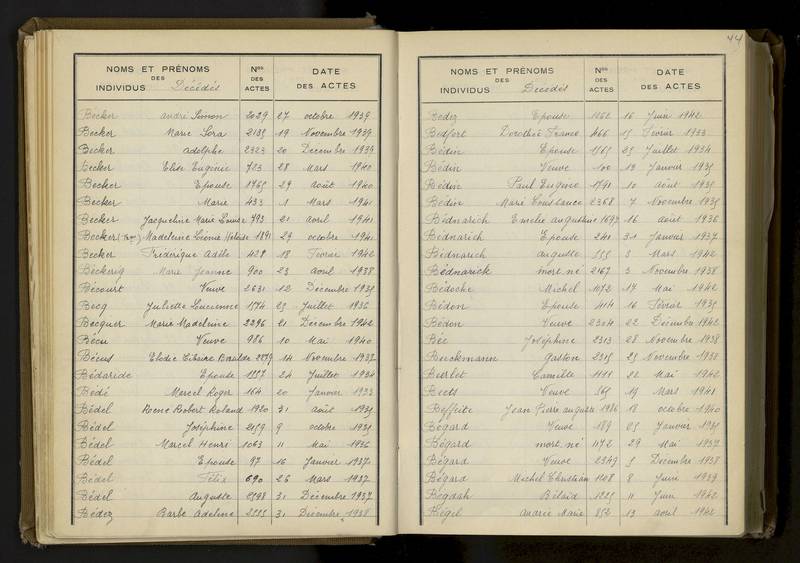 NOMS ET PRÉNOMS DES INDIVIDUS Décédés Nos DES ACTES DATE DES ACTES
Becker André Simon 2029 27 octobre 1939
Becker Marie Sera 2135 19 Novembre 1939
Becker Adolphe 2323 20 Décembre 1939
Becker Elise Eugénie 723 28 Mars 1940
Becker Epouse 1765 29 août 1940
Becker Marie 433 1 Mars 1941
Becker Jacqueline Marie Louise 793 21 avril 1941
Becker Madeleine Léonie Héloïse 1891 29 octobre 1941
Becker Fréderique Adèle 428 18 Fevrier 1942
Beckerig Marie Jeanne 900 23 avril 1938
Bécourt Veuve 2631 12 Décembre 1935
Becq Juliette Lucienne 1574 25 Juillet 1936
Becquer Marie Madeleine 2296 21 Décembre 1942
Bécu Veuve 986 10 Mai 1940
Bécus Elodie 14 Novembre 1937
Bédaride Epouse 1557 24 Juillet 1934
Bédé Marcel Roger 164 20 Janvier 1933
Bédel René Robert Roland 1920 31 août 1935
Bédel Joséphine 2159 9 octobre 1935
Bédel Marcel Henri 1063 11 Mai 1936
Bédel Epouse 97 16 Janvier 1937
Bédel Félix 690 26 Mars 1937
Bédel Auguste 2598 31 Décembre 1937
Bédez Barbe Adeline 2555 31 Décembre 1938
44
NOMS ET PRÉNOMS DES INDIVIDUS Décédés Nos DES ACTES DATE DES ACTES
Bédez Epouse 1262 16 Juin 1942
Bedfort Dorothée 466 15 Février 1933
Bédin Epouse 1565 25 Juillet 1934
Bédin Veuve 100 13 Janvier 1935
Bédin Paul Eugène 1791 10 août 1935
Bédin Marie Constance 2368 7 Novembre 1935
Bédnarich Emelie augustine 1697 16 août 1936
Bédnarich Epouse 241 31 Janvier 1937
Bédnarich auguste 555 3 Mars 1942
Bédnarick mort né 2167 3 Novembre 1938
Bédoche Michel 1072 17 Mai 1942
Bédon Epouse 414 16 Février 1935
Bédon Veuve 2304 22 Décembre 1942
Bée Joséphine 2313 28 Novembre 1938
Beeckmann Gaston 2315 25 Novembre 1938
Beerlet Camille 1111 22 Mai 1942
Beets Veuve 565 19 Mars 1941
Beffeite Jean Pierre auguste 1986 18 octobre 1940
Bégard Veuve 189 25 Janvier 1935
Bégard mort né 1172 29 Mai 1937
Bégard Veuve 2349 5 Décembre 1938
Bégard Michel Christian 1108 8 Juin 1939
Bégdah Bélaïd 1225 11 Juin 1942
Bégel Andrée Marie 852 13 avril 1942